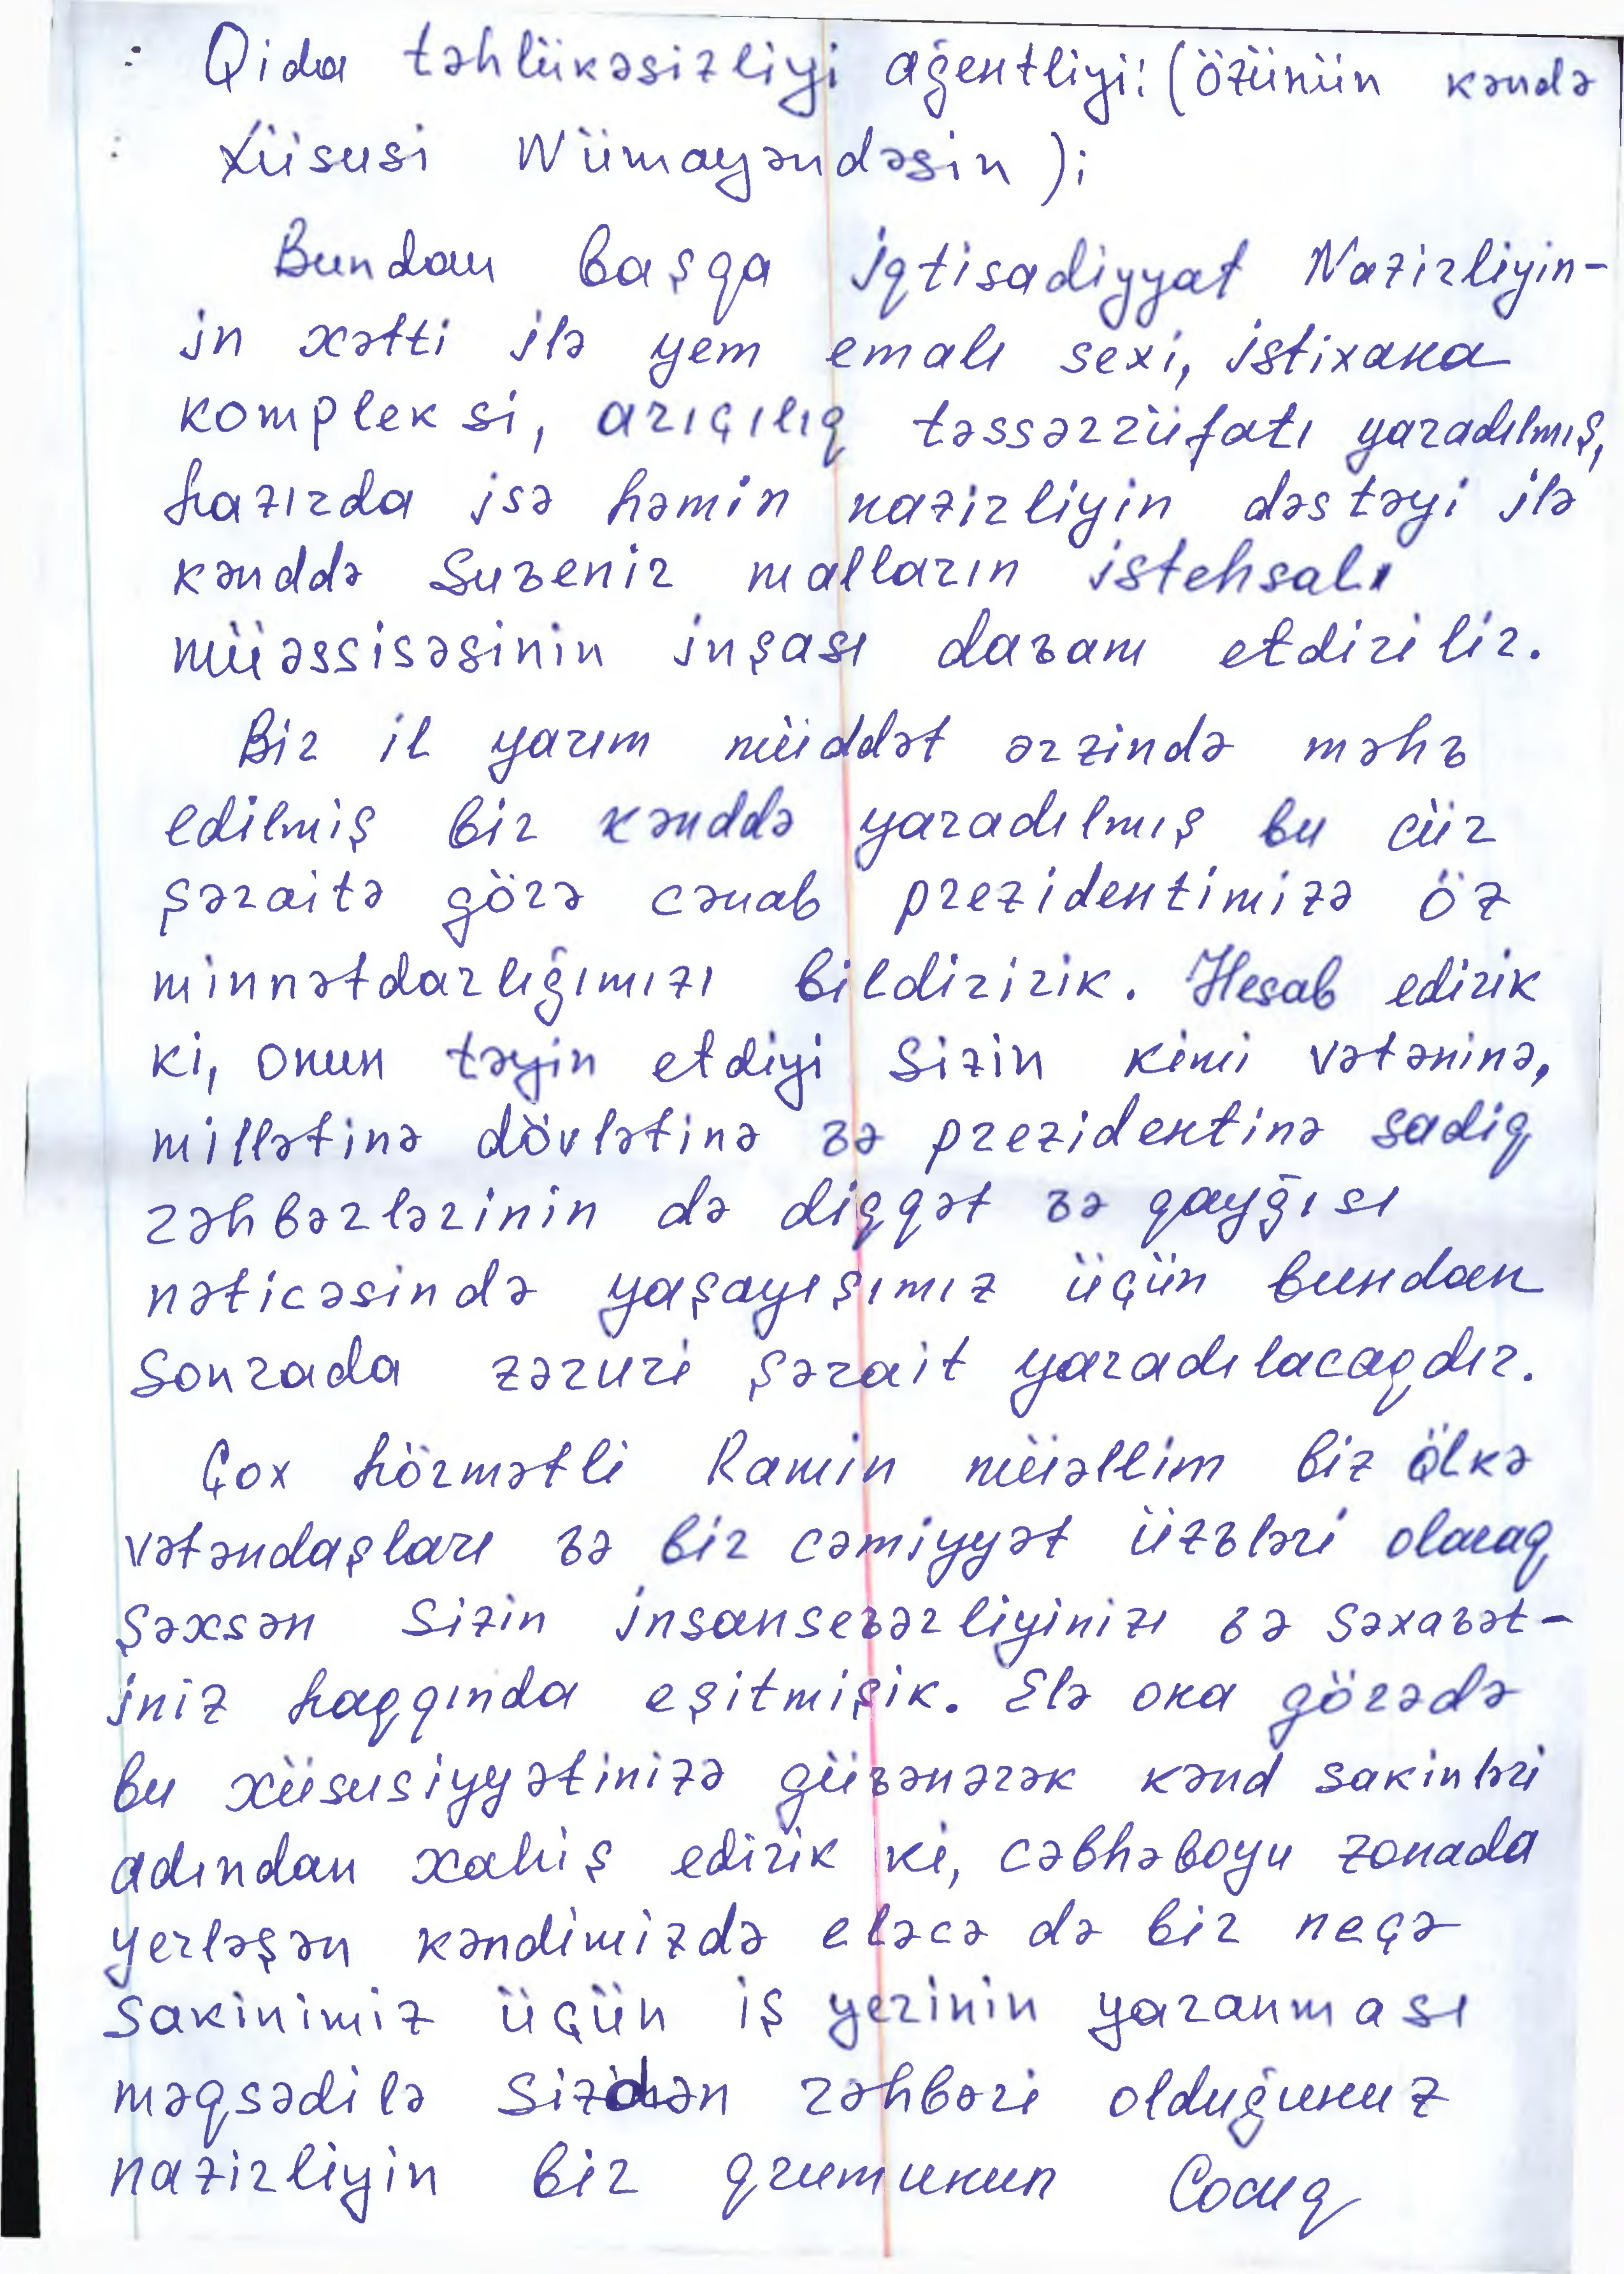 Qida təhlükəsizliyi ağentliyi: (özünün kəndə
Xüsusi Nümayəndəsin);
Bundan başqa iqtisadiyyat Nazirliyin-
in xətti ilə yem emalı sexi, istixana
kompleksi, arıçılıq təssərrüfatı yaradılmış,
hazırda isə həmin nazirliyin dəstəyi ilə
kənddə Suvenir malların istehsalı
müəssisəsinin inşası davam etdirilir.
Bir il yarım müddət ərzində məhv
edilmiş bir kənddə yaradılmış bu cür
şəraitə görə cənab prezidentimizə öz
minnətdarlığımızı bildiririk. Hesab edirik
ki, onun təyin etdiyi Sizin kimi vətəninə,
millətinə dövlətinə və prezidentinə sadiq
rəhbərlərinin də diqqət və qayğısı
nəticəsində yaşayışımız üçün bundan
Sonrada zəruri şərait yaradılacaqdır.
Çox hörmətli Ramin müəllim biz ölkə
vətəndaşları və bir cəmiyyət üzvləri olaraq
Şəxsən Sizin insansevərliyinizi və Səxavət-
iniz haqqında eşitmişik. Elə ona görədə
bu xüsusiyyətinizə güvənərək kənd sakinləri
adından xahiş edirik ki, cəbhəboyu zonada
yerləşən kəndimizdə eləcə də bir neçə
Sakinimiz üçün iş yerinin yaranması
məqsədilə Sizdən rəhbəri olduğunuz
nazirliyin bir qrumunun Cocuq